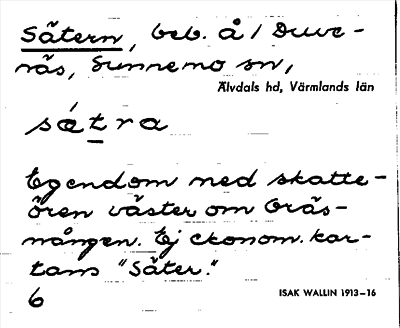 Sätern, beb. å / Duve-
näs, Sunnemo sn,
Älvdals hd, Värmlands län
sǽtra
Egendom med skatte-
ören väster om Gräs-
mången. Ej ekonom. kar-
tans "Säter."
6
ISAK WALLIN 1913-16